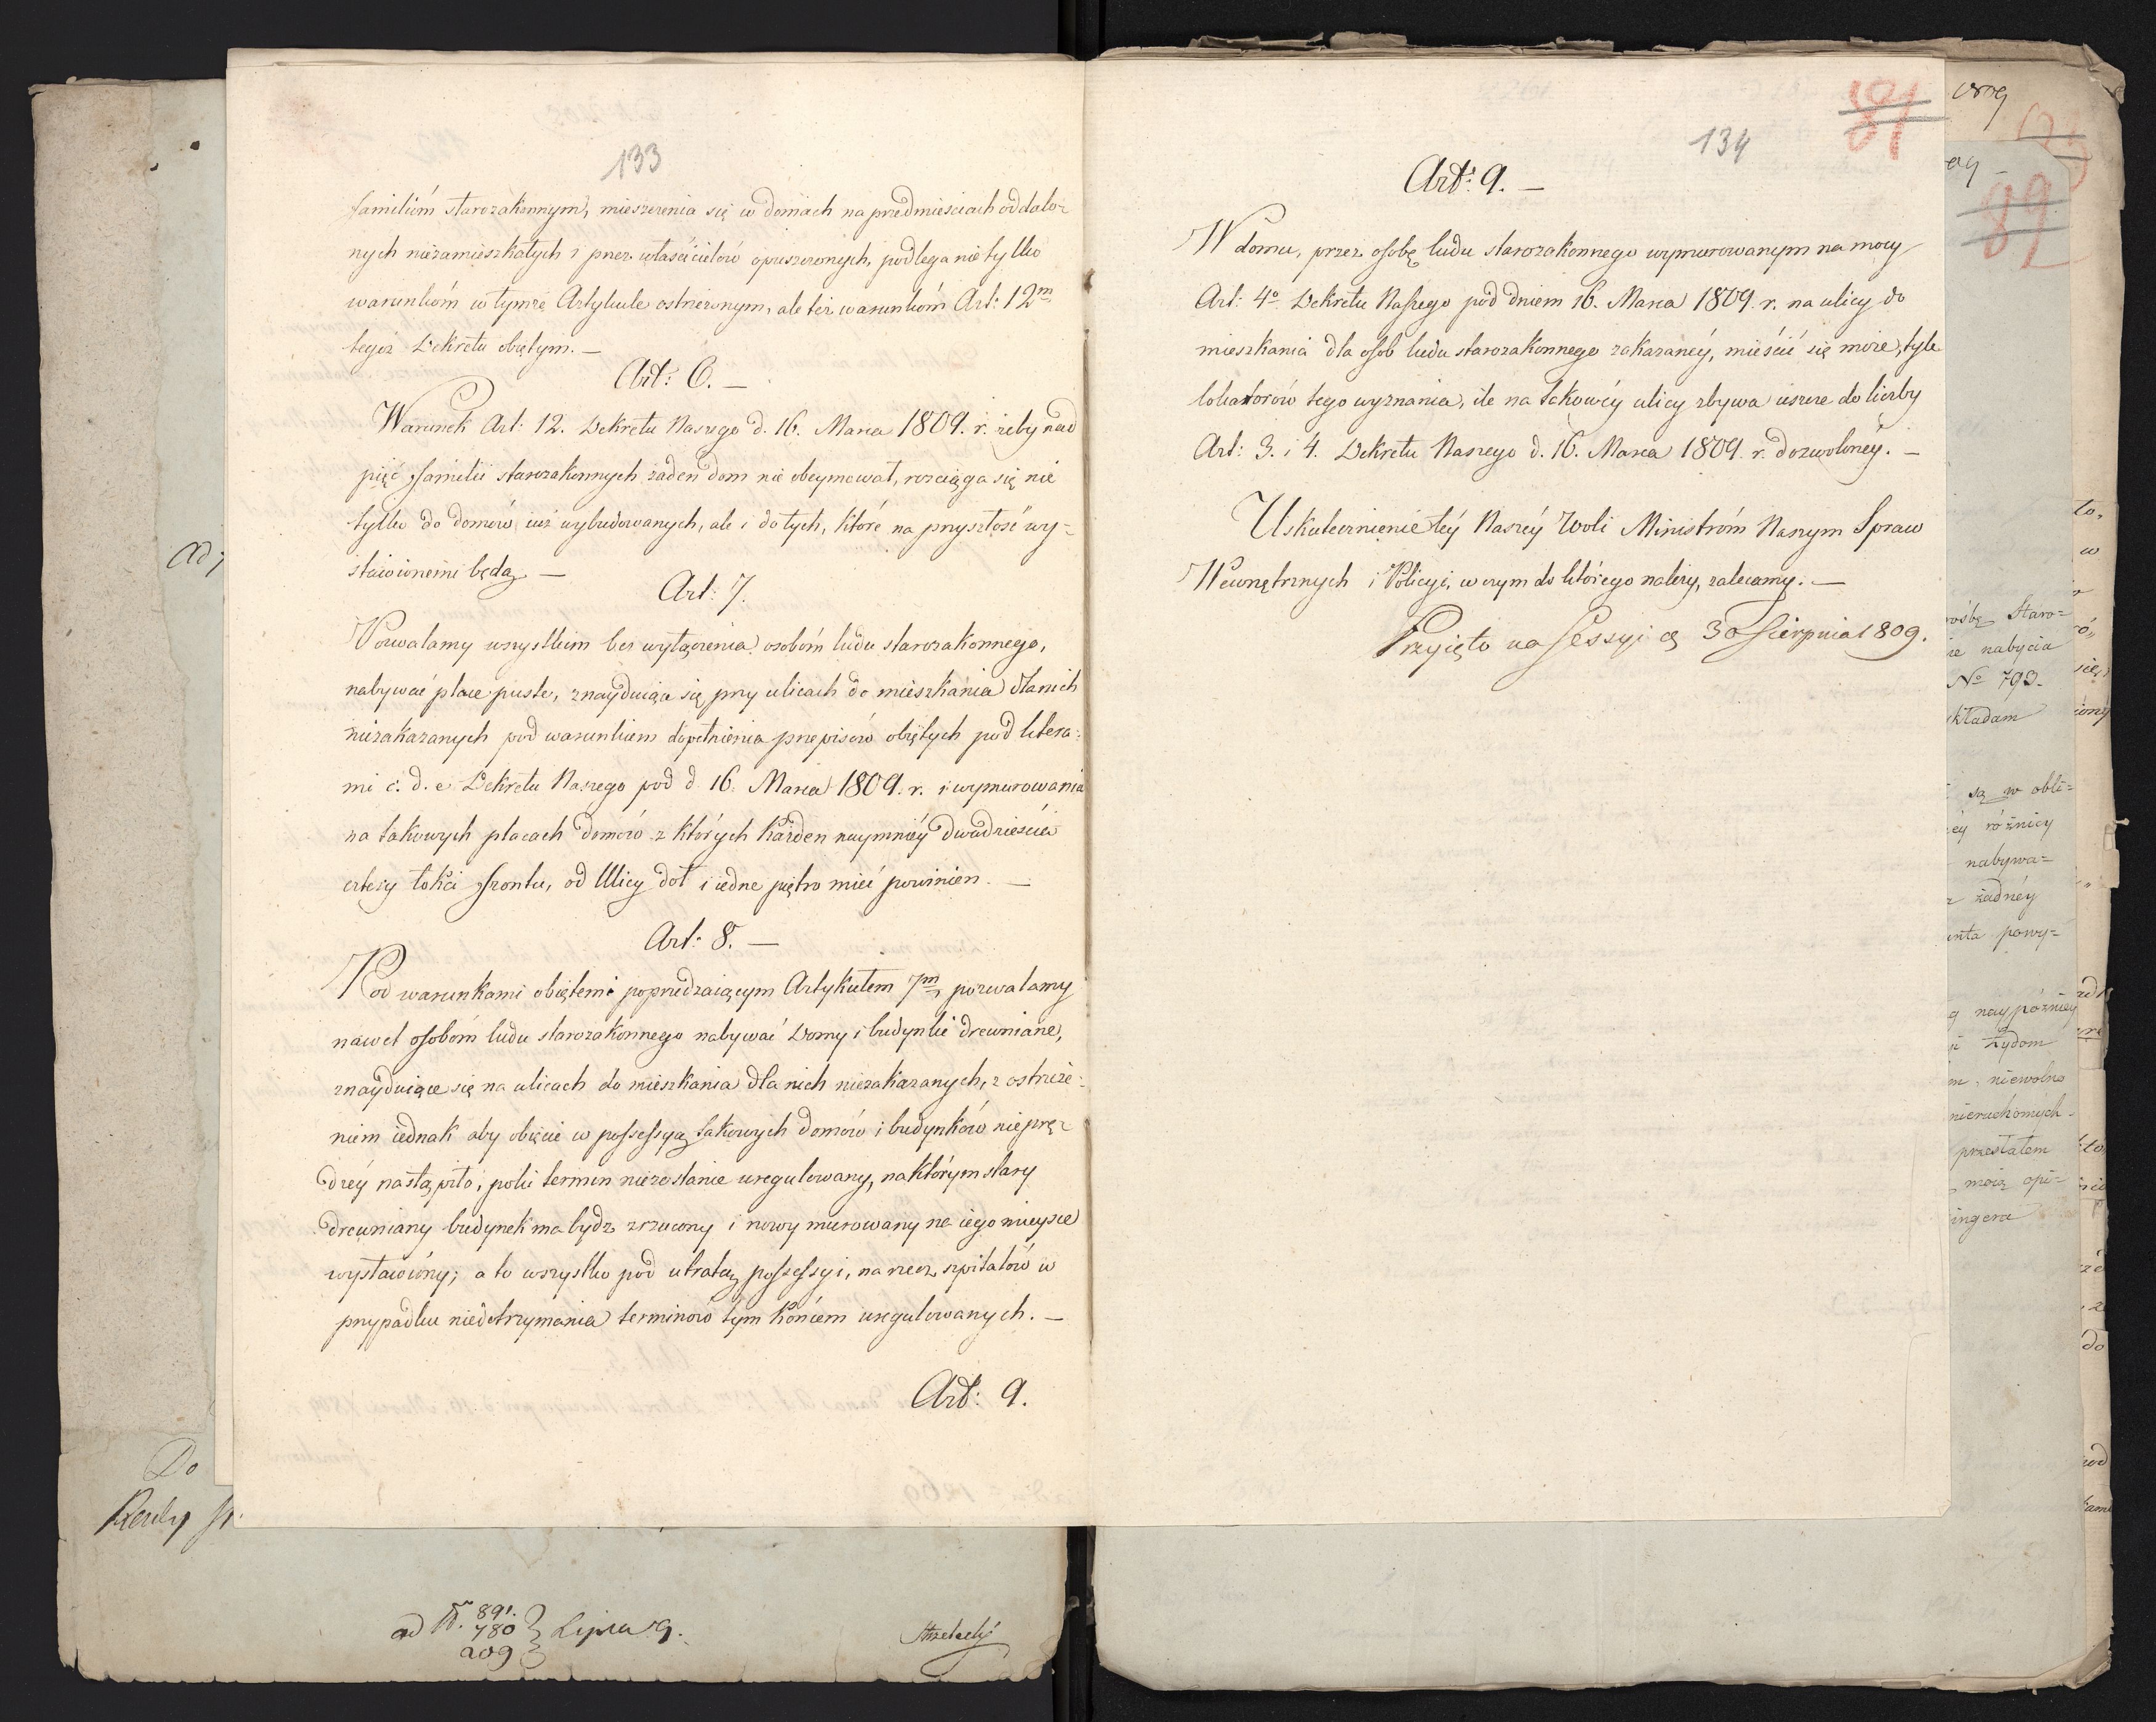 133
familióm starozakonnym, mieszczenia się w domach na przedmieściach oddalo-
nych niezamieszkałych i przez właścicielów opuszczonych, podlega nie tylko
warunkóm w tymże Artykule ostrzeżonym, ale też warunkóm Art: 12m
tegoż Dekretu obiętym. —
Art: 6. —
Warunek Art: 12. Dekretu Naszego d. 16. Marca 1809. r. żeby nad
pięć familii starozakonnych żaden dom nie obeymował, rozciąga się nie
tylko do domów iuż wybudowanych, ale i do tych, które na przyszłość wy-
stawionemi będą. —
Art: 7.
Pozwalamy wszystkim bez wyłączenia osobóm ludu starozakonnego,
nabywać place puste, znayduiące się przy ulicach do mieszkania dla nich
niezakazanych pod warunkiem dopełnienia przepisów obiętych pod litera-
mi c. d. e Dekretu Naszego pod d 16. Marca 1809. r. i wymurowania
na takowych placach domów z których każden naymniéy dwadzieścia
cztery łokci frontu, od Ulicy dół i iedne piętro mieć powinien. —
Art: 8. —
Pod warunkami obiętemi poprzedzaiącym Artykułem 7m, pozwalamy
nawet osobóm ludu starozakonnego nabywać Domy i budynki drewniane,
znayduiące się na ulicach do mieszkania dla nich niezakazanych, z ostrzeże-
niem iednak aby obięcie w possessyą takowych domów i budynków nieprę-
dzéy nastąpiło, poki termin niezostanie uregulowany, na którym stary
drewniany budynek ma bydz zrzucony i nowy murowany na iego mieysce
wystawiony; a to wszystko pod utratą possessyi, na rzecz szpitalów w
przypadku niedotrzymania terminów tym końcem uregulowanych. —
Art: 9.
134
Art: 9. —
W domu, przez osobę ludu starozakonnego wymurowanym na mocy
Art: 4o Dekretu Naszego pod dniem 16. Marca 1809. r. na ulicy do
mieszkania dla osob ludu starozakonnego zakazanéy, mieścić się może, tyle
lokatorów tego wyznania, ile na takowéy ulicy zbywa ieszcze do liczby
Art: 3. i 4. Dekretu Naszego d. 16. Marca 1809. r. dozwolonéy. —
Uskutecznienie téy Naszéy Woli Ministróm Naszym Spraw
Wewnętrznych i Policyi, w czym do którego należy, zalecamy. —
Przyięto na Sessyi dj 30 Sierpnia 1809.
89
rośbę Staro=
ie nabycia
No 793.
kładam
są w obli=
éy różnicy
nabywa=
żadnéy
powy=
naypóźniey
żydom
niewolno
nieruchomych
przestałem
moią opi=
ingera
Do
ad N. 891.
780
209
Lipca 9.